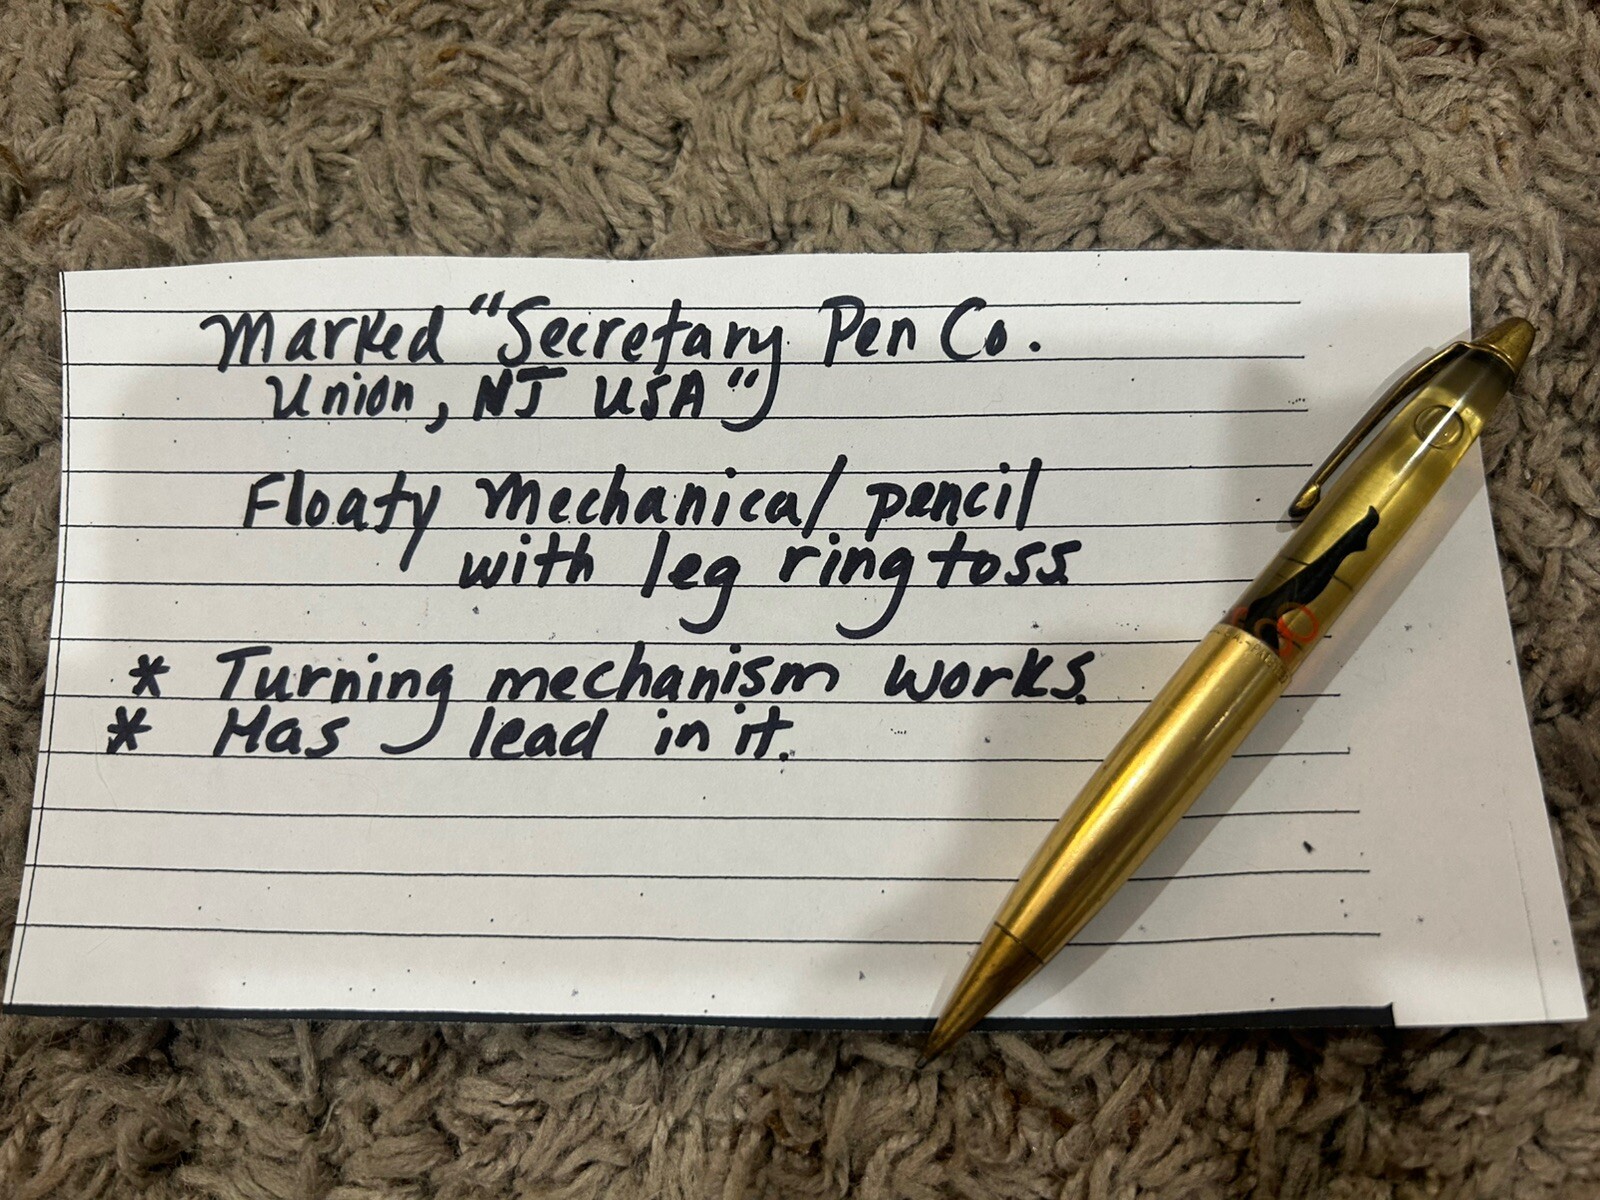 Marked "Secretary Pen Co.
Union, NJ USA"
Floaty mechanical pencil
with leg ring toss.
* Turning mechanism works.
* Has lead in it.